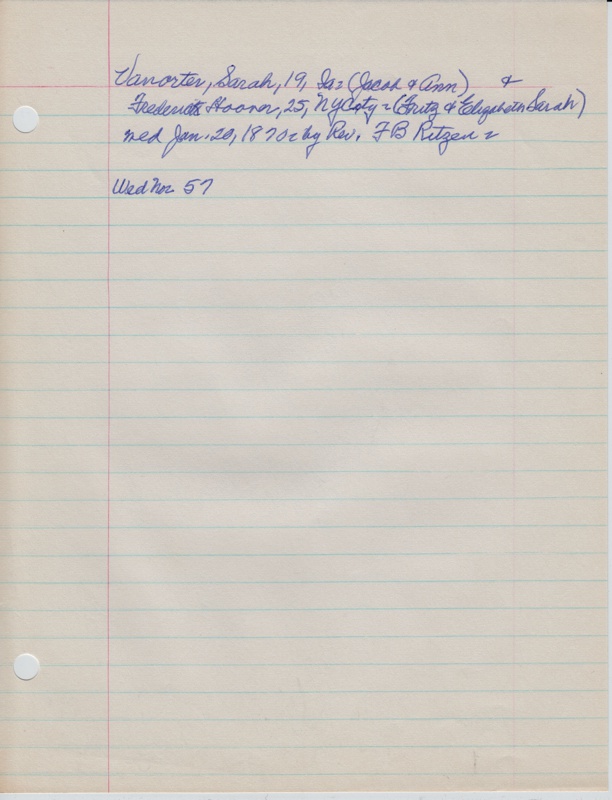 Vanorter, Sarah, 19, Ia = (Jacob & Ann) &
Frederick Hoover, 25, NY City = (Fritz & Elizabeth Sarah)
med Jan. 20, 1870 = by Rev. F B Ritzen =
Wed No. 57